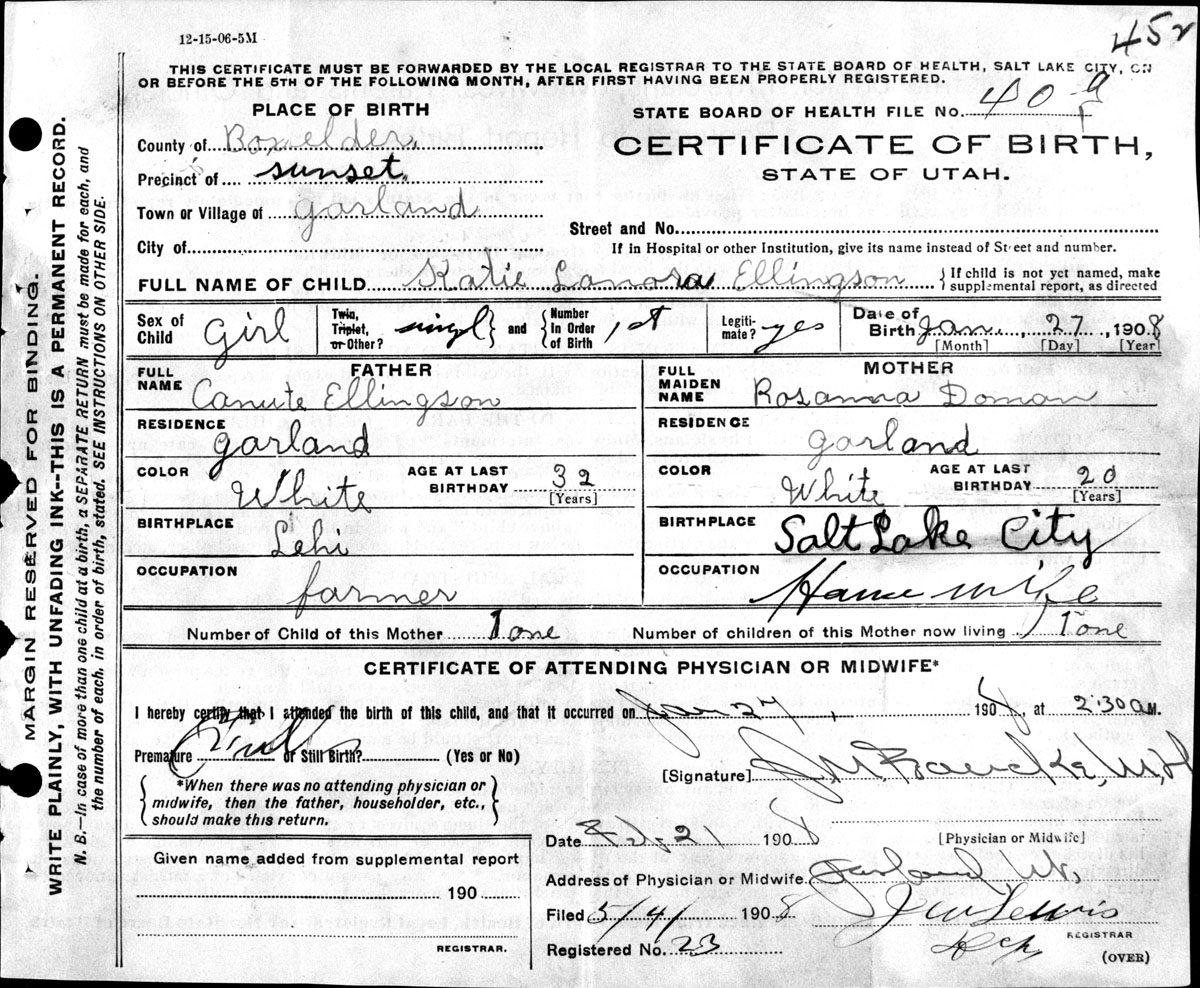 452
12-15-06-5M
THIS CERTIFICATE MUST BE FORWARDED BY THE LOCAL REGISTRAR TO THE STATE BOARD OF HEALTH, SALT LAKE CITY, ON
OR BEFORE THE 5TH OF THE FOLLOWING MONTH, AFTER FIRST HAVING BEEN PROPERLY REGISTERED.
PLACE OF BIRTH
STATE BOARD OF HEALTH FILE NO. 409
County of Boxelder
CERTIFICATE OF BIRTH,
Precinct of Sunset
STATE OF UTAH.
Town or Village of Garland
Street and No.
City of
If in Hospital or other Institution, give its name instead of Street and number.
FULL NAME OF CHILD Katie Lanora Ellingson { If child is not yet named, make supplemental report, as directed
Sex of Child Girl Twin, Triplet, or Other? singl } and { Number In Order of Birth 1st Legitimate? yes Date of Birth Jan. 27, 1908
[Month] [Day] [Year]
FATHER
MOTHER
FULL NAME Canute Ellingson
FULL MAIDEN NAME Rosanna Doman
RESIDENCE Garland
RESIDENCE Garland
COLOR White AGE AT LAST BIRTHDAY 32 [Years]
COLOR White AGE AT LAST BIRTHDAY 20 [Years]
BIRTHPLACE Lehi
BIRTHPLACE Salt Lake City
OCCUPATION farmer
OCCUPATION House wife
Number of Child of this Mother 1 one
Number of children of this Mother now living 1 one
CERTIFICATE OF ATTENDING PHYSICIAN OR MIDWIFE*
I hereby certify that I attended the birth of this child, and that it occurred on Jan 27, 1908, at 2:30 a M.
Premature or Still Birth? (Yes or No)
[Signature] M.D.
*When there was no attending physician or midwife, then the father, householder, etc., should make this return.
Date 1908
[Physician or Midwife]
Given name added from supplemental report
Address of Physician or Midwife Garland Ut.
190
Filed 5/4/ 1908 J W Lewis
REGISTRAR.
REGISTRAR
Registered No. 23
Dep
(OVER)
MARGIN RESERVED FOR BINDING.
WRITE PLAINLY, WITH UNFADING INK--THIS IS A PERMANENT RECORD.
N. B.—In case of more than one child at a birth, a SEPARATE RETURN must be made for each, and
the number of each, in order of birth, stated. SEE INSTRUCTIONS ON OTHER SIDE.